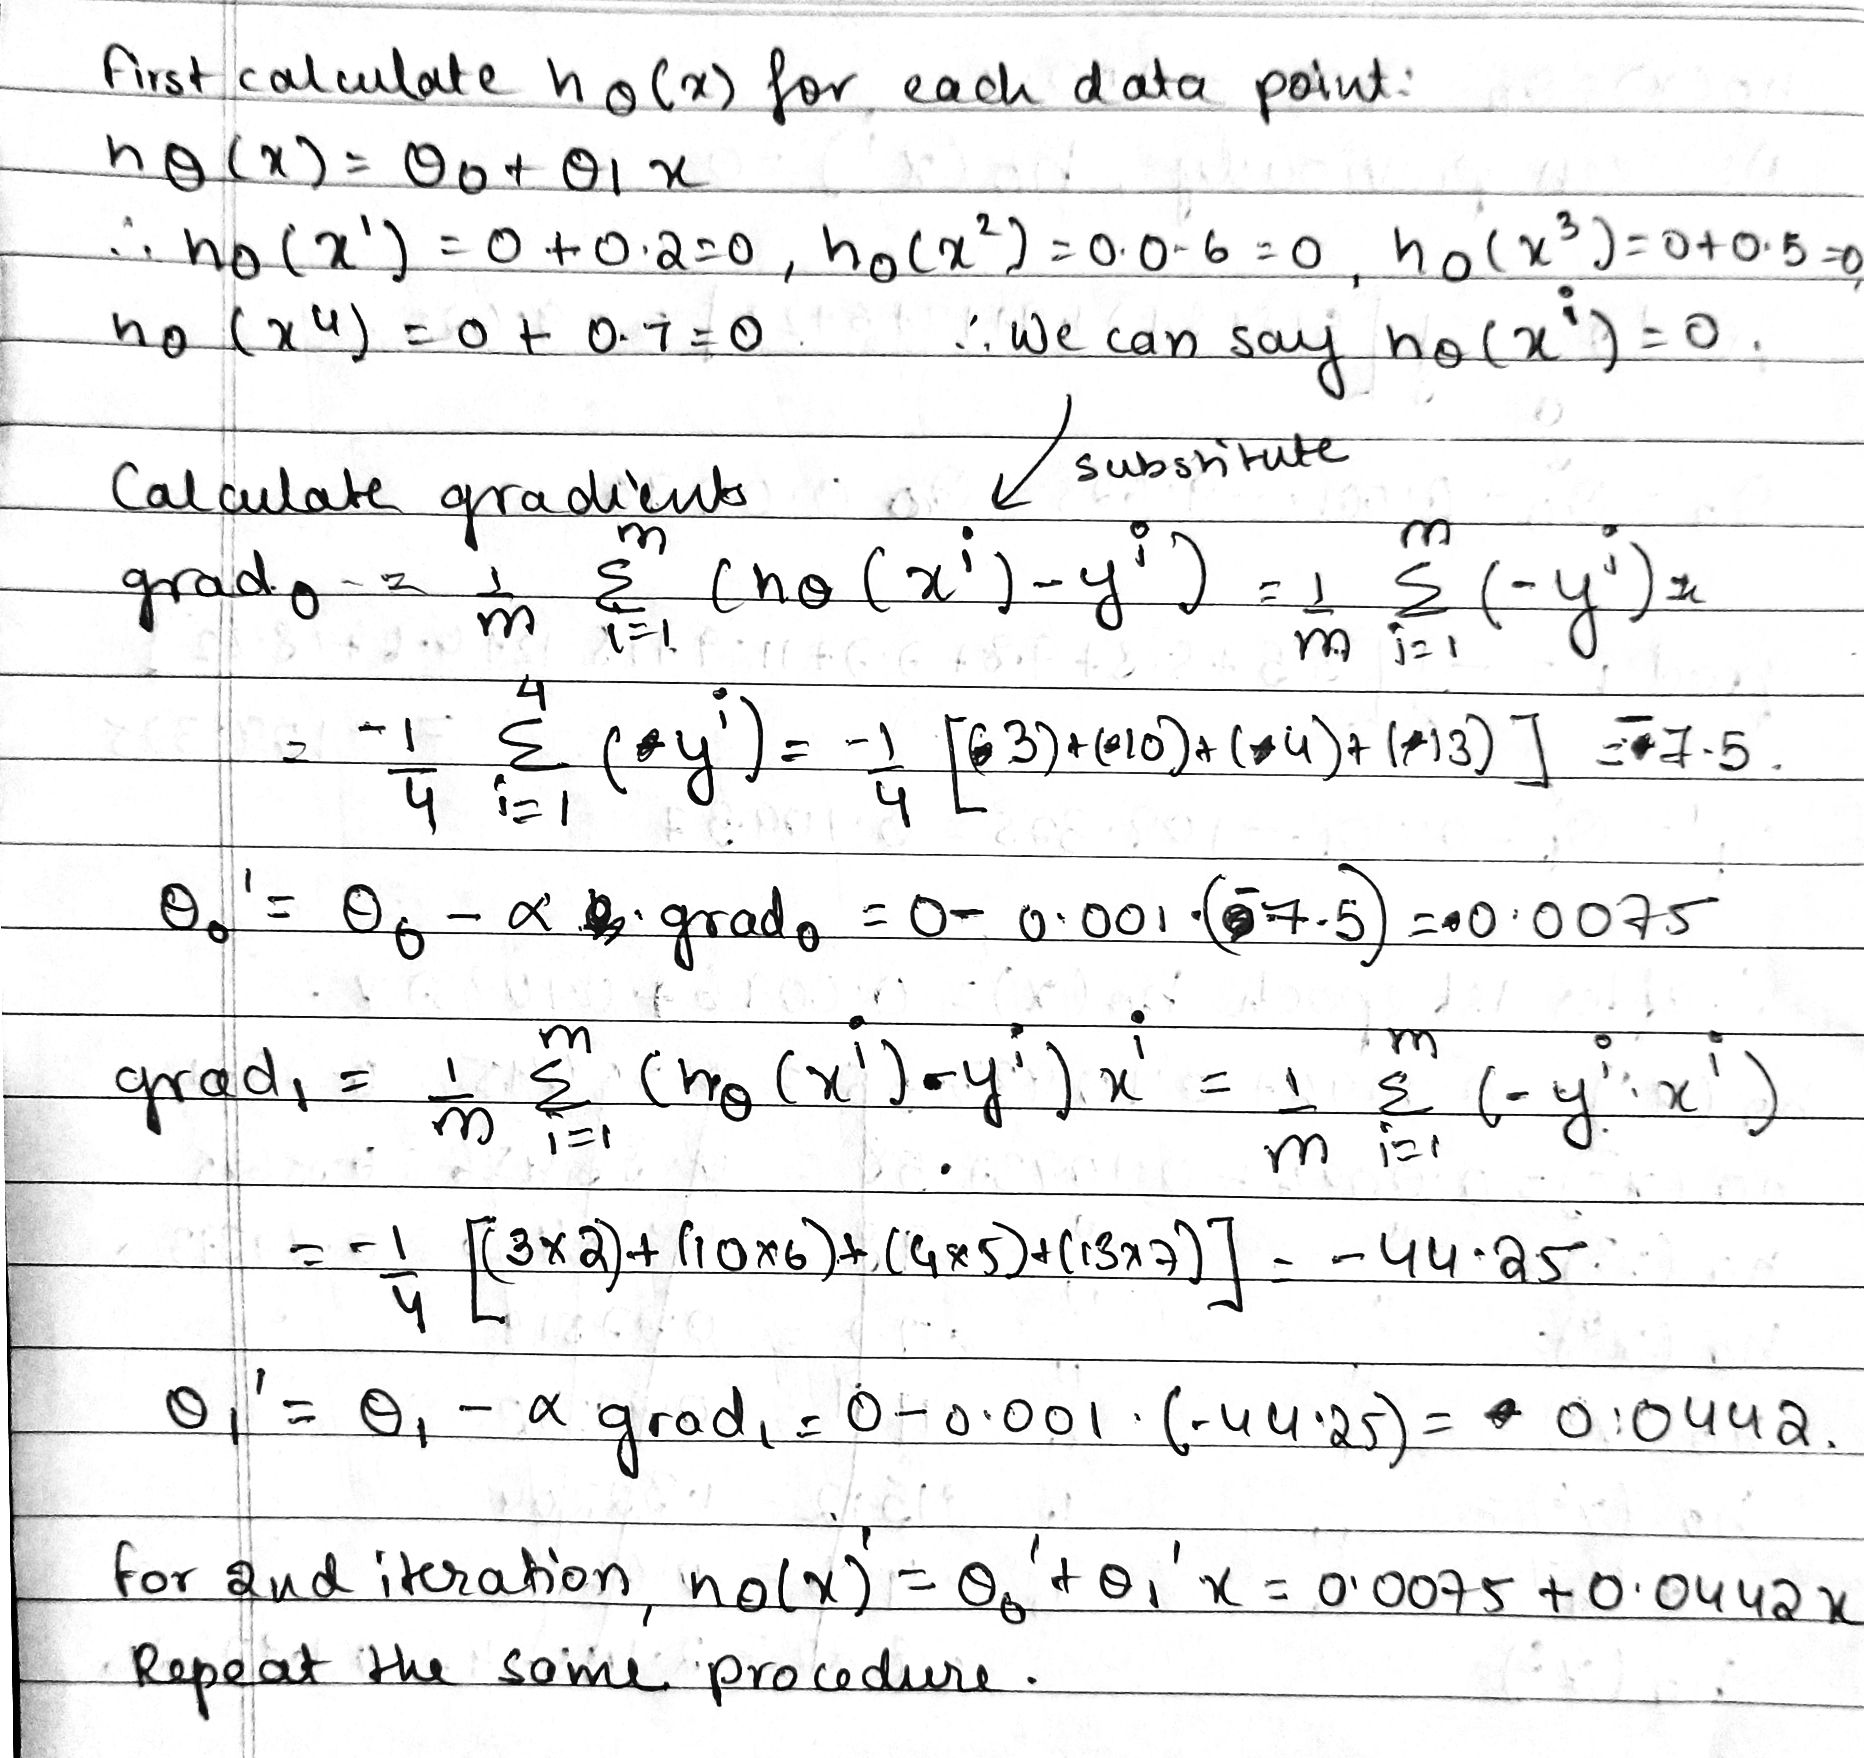 First calculate hθ(x) for each data point:
hθ(x) = θ0 + θ1 x
∴ hθ(x¹) = 0 + 0·2 = 0, hθ(x²) = 0·0·6 = 0, hθ(x³) = 0+0·5 = 0,
hθ(x⁴) = 0 + 0·7 = 0 ∴ We can say hθ(xⁱ) = 0.
substitute
Calculate gradients
grad₀ = 1/m Σ_{i=1}^{m} (hθ(xⁱ) - yⁱ) = 1/m Σ_{i=1}^{m} (-yⁱ)x
= -1/4 Σ_{i=1}^{4} (yⁱ) = -1/4 [(3)+(10)+(4)+(13)] = -7.5.
θ₀' = θ₀ - α · grad₀ = 0 - 0.001 · (-7.5) = 0.0075
grad₁ = 1/m Σ_{i=1}^{m} (hθ(xⁱ) - yⁱ) xⁱ = 1/m Σ_{i=1}^{m} (-yⁱ · xⁱ)
= -1/4 [(3×2)+(10×6)+(4×5)+(13×7)] = -44.25
θ₁' = θ₁ - α grad₁ = 0 - 0.001 · (-44.25) = 0.0442.
for 2nd iteration, hθ(x)' = θ₀' + θ₁' x = 0.0075 + 0.0442x
Repeat the same procedure.